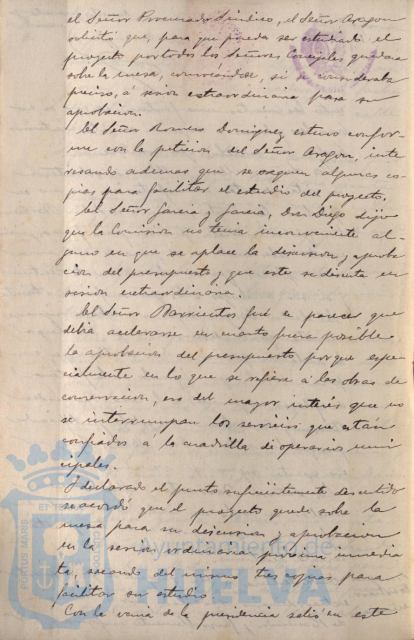 el Señor Procurador Síndico, el Señor Aragon
solicitó que, para que pueda ser estudiado el
proyecto por todos los Señores Concejales quedara
sobre la mesa, convocandose, si se consideraba
preciso, á sesión extraordinaria para su
aprobacion.
El Señor Romero Dominguez estuvo confor-
me con la peticion del Señor Aragon, inte-
resando ademas que se saquen algunas co-
pias para facilitar el estudio del proyecto.
El Señor Garcia y Garcia, Don Diego dijo
que la Comision no tenia inconveniente al-
guno en que se aplace la discusion y aproba-
cion del presupuesto y que este se discuta en
sesion extraordinaria.
El Señor Barrientos fué de parecer que
debia acelerarse en cuanto fuera posible
la aprobacion del presupuesto porque espe-
cialmente en lo que se refiere á las obras de
conservacion, era del mayor interés que no
se interrumpan los servicios que estan
confiados á la cuadrilla de operarios muni-
cipales.
Y declarado el punto suficientemente discutido
se acordó que el proyecto quede sobre la
mesa para su discusion y aprobacion
en la sesion ordinaria proxima inmedia-
ta, sacando del mismo tres copias para
facilitar su estudio.
Con la venia de la presidencia salió en este
PORTUS MARIS
ET TERRAE
Ayuntamiento de
HUELVA